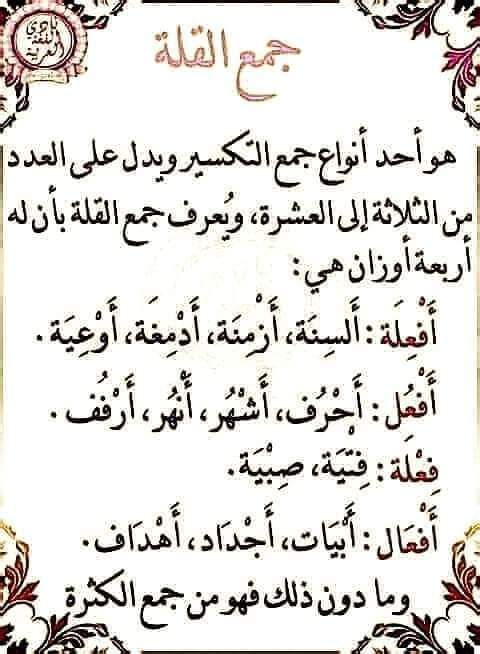 نادي
اللغة
العربية
جمع القلة
هو أحد أنواع جمع التكسير ويدل على العدد
من الثلاثة إلى العشرة، ويُعرف جمع القلة بأن له
أربعة أوزان هي:
أَفْعِلَة: أَلسِنَة، أَزْمِنَة، أَدْمِغَة، أَوْعِيَة.
أَفْعُل: أَحْرُف، أَشْهُر، أَنْهُر، أَرْفُف.
فِعْلة: فِتْيَة، صِبْيَة.
أَفْعَال: أَبْيَات، أَجْدَاد، أَهْدَاف.
وما دون ذلك فهو من جمع الكثرة